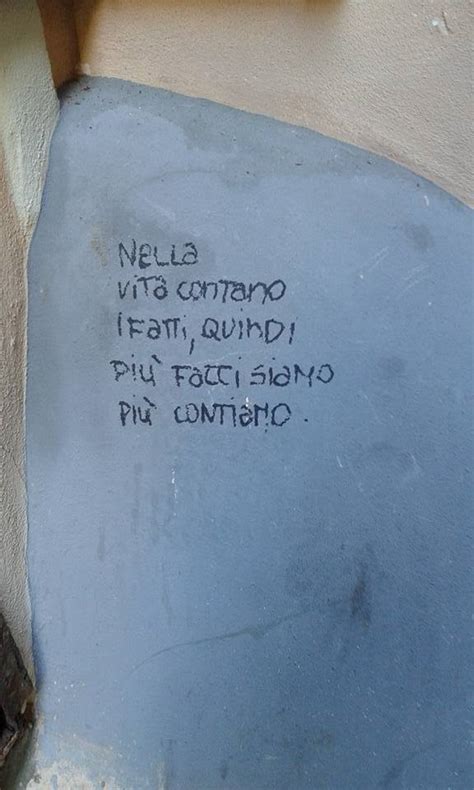 NELLA
VITA CONTANO
I FATTI, QUINDI
PIÙ FATTI SIAMO
PIÙ CONTIAMO.